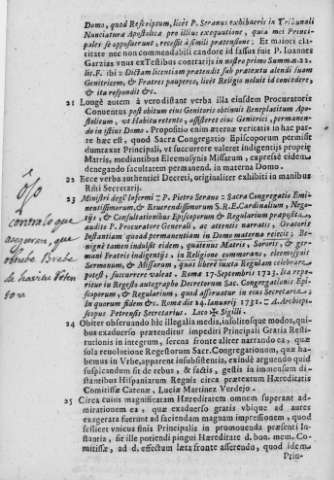 Domo, quod Rescriptum, licèt P. Seranus exhibuerit in Tribunali
Nunciaturæ Apostolicæ pro illius exequutione, quia mei Principales se opposuerunt, recessit à simili prætensione: Et maiori claritate nec non commendabili candore id fassus fuit P. Ioannes
Garzias vnus ex Testibus contrarijs in nostro primo Summ. 22.
lit. F. ibi: Dictam licentiam prætendit sub prætextu alendi suam
Genitricem, & Fratres pauperes, licèt Religio noluit id concedere,
& ita respondit &c.
21 Longè autem à vero distant verba illa eiusdem Procuratoris
Conuentus post obitum eius Genitoris obtinuit Beneplacitum Apostolicum, vt Habitu retento, assisteret eius Genitrici, permanendo in istius Domo. Propositio enim æterna veritatis in hac parte hæc est, quod Sacra Congregatio Episcoporum permisit
duntaxat Principali, vt succurrere valeret indigentijs proprię
Matris, mediantibus Eleemosynis Missarum, expressè eidem
denegando facultatem permanend. in materna Domo.
22 Ecce verba authentici Decreti, originaliter exhibiti in manibus
Rñsi Secretarij.
23 Ministri desp! Infermi = P. Pietro Serano = Sacra Congregatio Eminentissimorum, & Reuerendissimorum S.R.E. Cardinalium, Negotijs, & Consultationibus Episcoporum & Regularium præposita
audito P. Procuratore Generali, ac attentis narratis, Oratoris
Instantiam quoad permanentiam in Domo materna reiecit; Benignè tamen indulsit eidem, quatenus Matris, Sororis, & germani Fratris indigentijs, in Religione commorans, eleemosynis
Sermonum, & Missarum, quas liberè iuxta Regulam celebrare
potest, succurrere valeat = Roma 17. Septembris 1723. Ita reperitur in Regesto autographo Decretorum Sac. Congregationis Episcoporum, & Regularium, quod asseruatur in eius Secretaria =
In quorum fidem &c. Roma die 24. Ianuarij 1732. = A. Archiepiscopus Petrensis Secretarius. Loco ✠ Sigilli.
24 Obiter obseruando hic illegalia medij, insoliosque modos, quibus exaduerso prætenditur impediri Principali Gratia Restitutionis in integrum, serena fronte aliter narrando ea, quæ
sola reuolutione Regestorum Sacr. Congregationum, quæ habemus in Vrbe, apparent insubsistentia, exindè arguendo quid
suspicandum sit de rebus, & factis, gestis in immensum distantibus Hispaniarum Regnis circa prætextum Hæreditatis
Comitissæ Catenæ, Luciæ Martinez Verdejo.
25 Circa cuius magnificatam Hæreditatem omnem superant admirationem ea, quæ exaduerso gratis vbique ad aures
exagerata fuerunt ad faciendam magnam impressionem, quod
scilicet vnicus finis Principalis in promouenda præsenti Instantia, sit ille potiendi pingui Hæreditate d. bon. mem. Comitissæ, ad d. effectum læta fronte asserendo, quod idem
Prin-
ojo
contra lo que
aseguran, que
obtubo Brebe